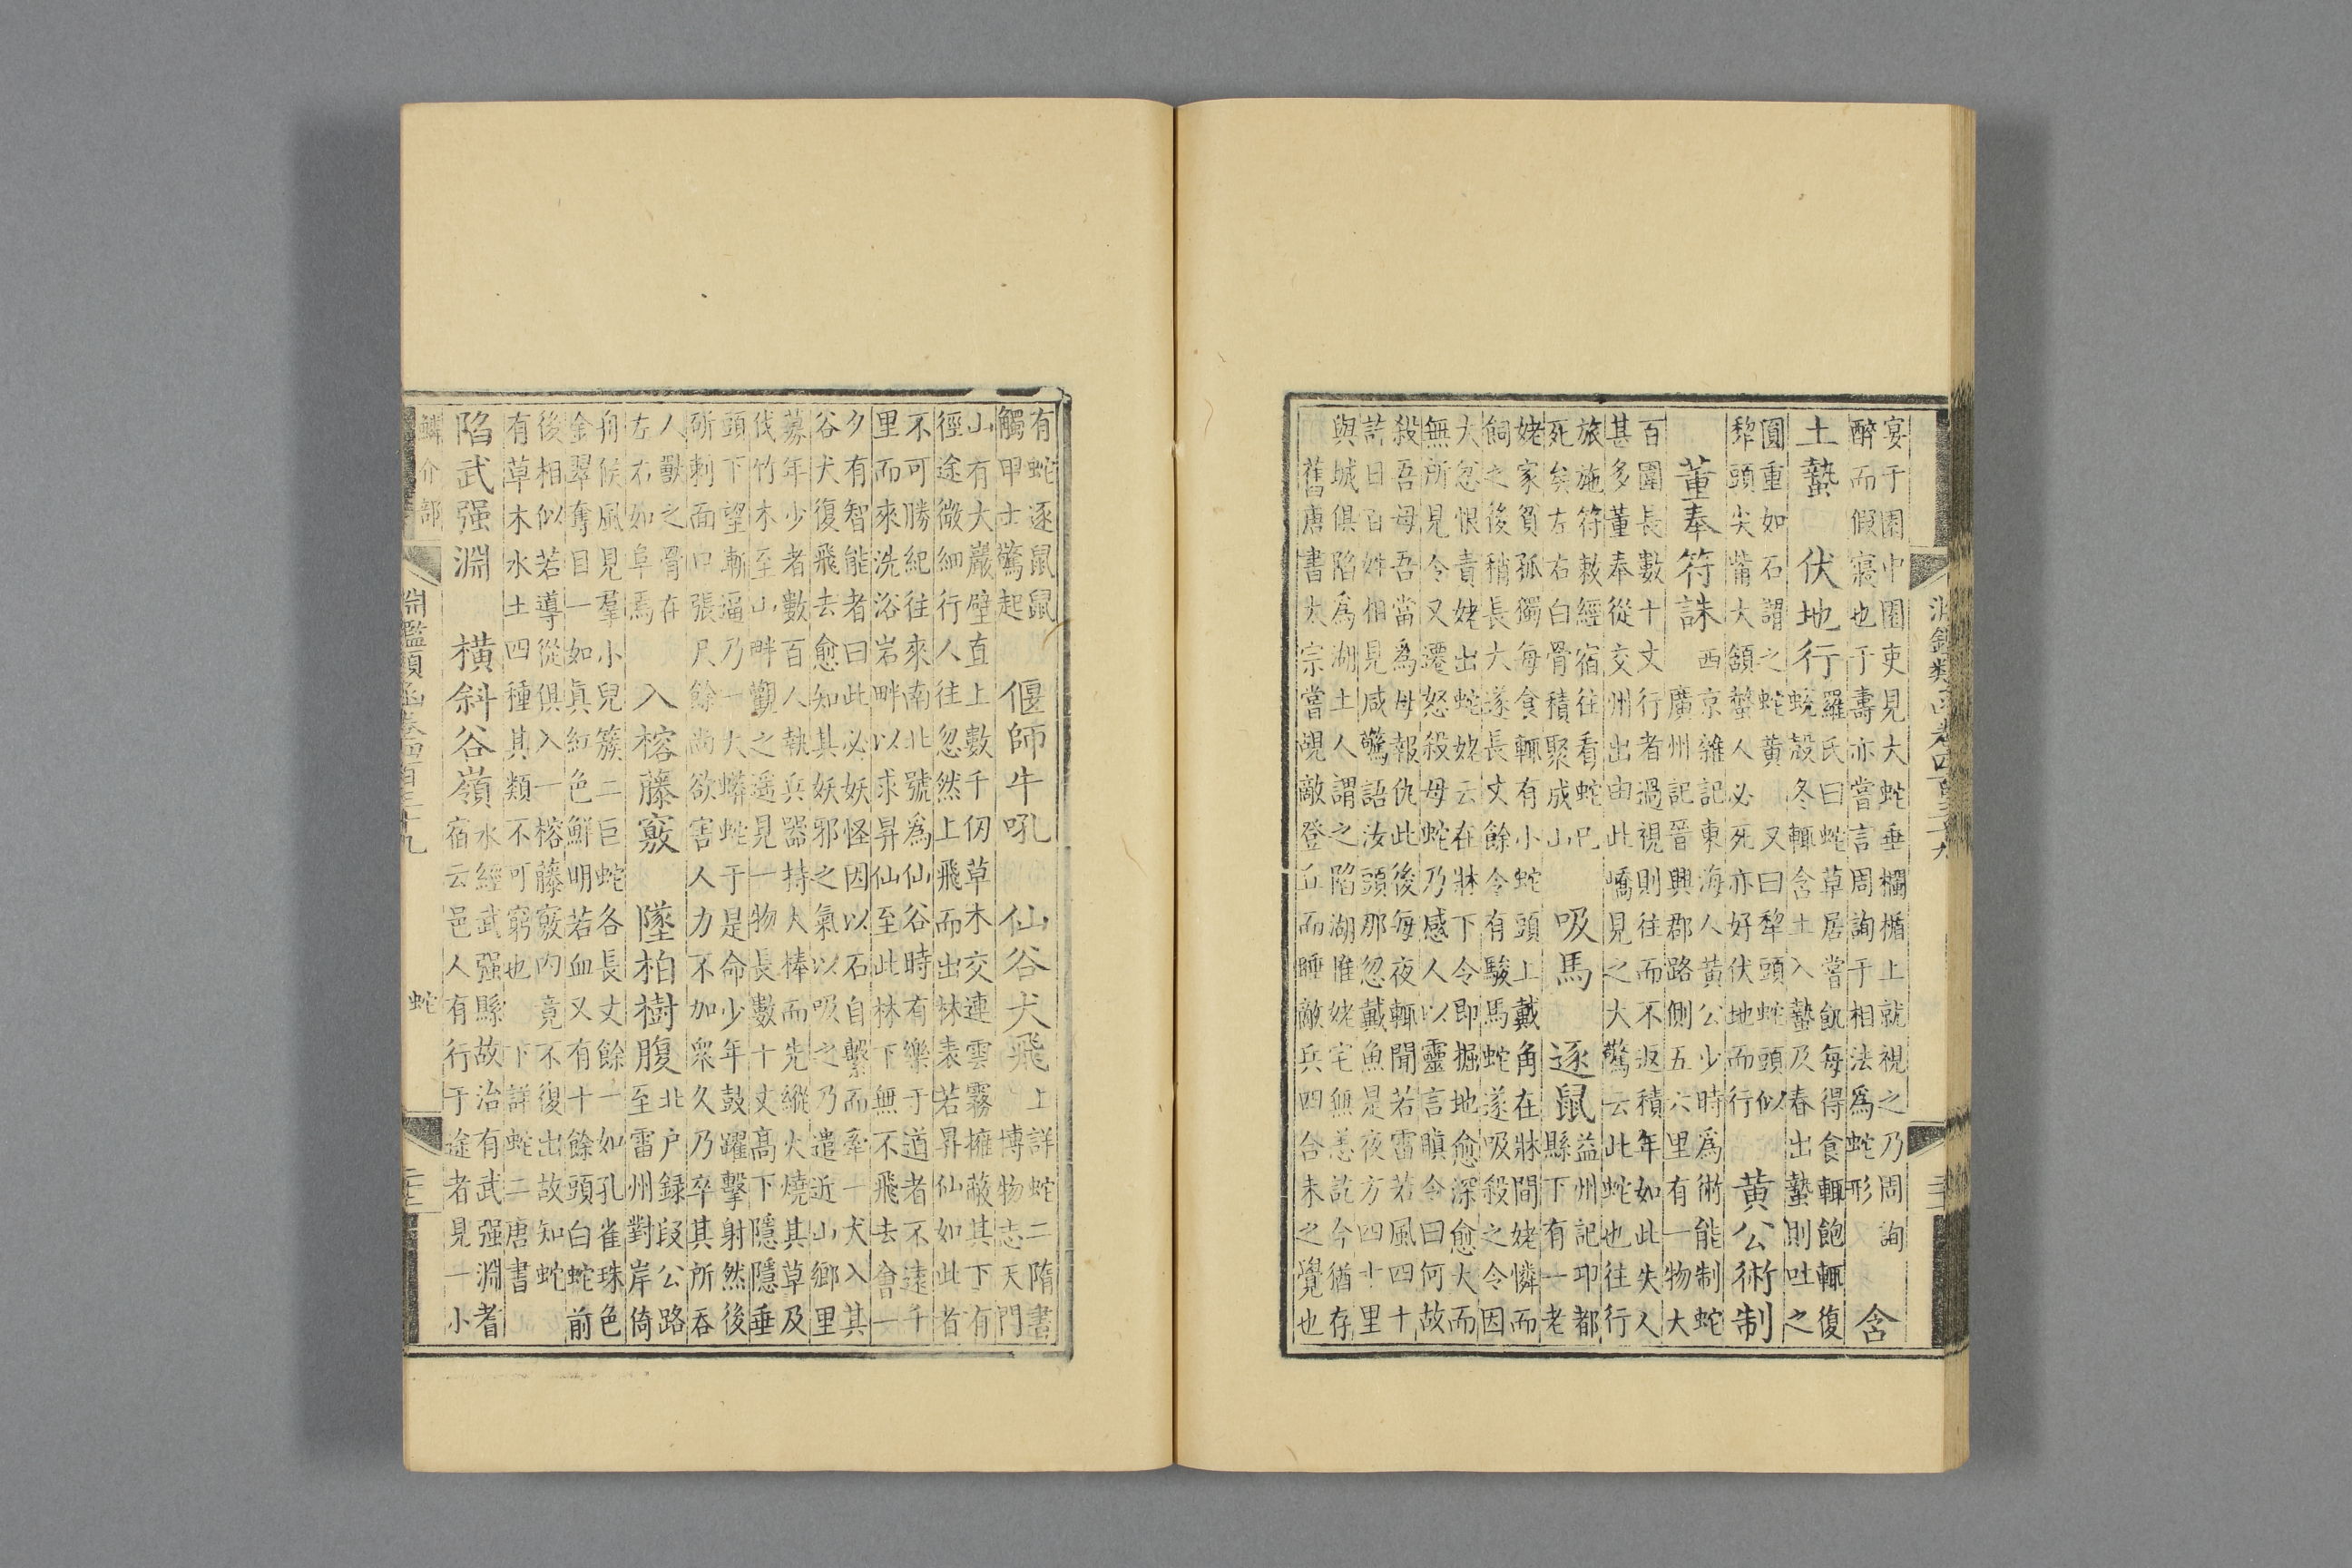 淵鑑類函卷四百三十九
宴于園中園吏見大蛇垂欄楯上就視之乃周詢
醉而假寢也于壽亦嘗言周詢于相法為蛇形
含
土蟄
伏地行
羅氏曰蛇草居嘗飢每得食輒飽輒復
蛻殼冬輒含土入蟄及春出蟄則吐之
圓重如石謂之蛇黃 又曰犂頭蛇頭似
犂頭尖觜大頷螫人必死亦好伏地而行
黃公術制
西京雜記東海人黃公少時為術能制蛇
董奉符誅
廣州記晉興郡路側五六里有一物大
百圍長數十丈行者過視則往而不返積年如此失人
甚多董奉從交州出由此嶠見之大驚云此蛇也住行
旅施符敕經宿往看蛇已
死矣左右白骨積聚成山
吸馬
逐鼠
益州記邛都
縣下有一老
姥家貧孤獨每食輒有小蛇頭上戴角在牀間姥憐而
飼之後稍長大遂長丈餘令有駿馬蛇遂吸殺之令因
大忿恨責姥出蛇姥云在牀下令即掘地愈深愈大而
無所見令又遷怒殺母蛇乃感人以靈言瞋令曰何故
殺吾母吾當為母報仇此後每夜輒聞若雷若風四十
許日百姓相見咸驚語汝頭那忽戴魚是夜方四十里
與城俱陷為湖土人謂之陷湖惟姥宅無恙訖今猶存
舊唐書太宗嘗覘敵登丘而睡敵兵四合未之覺也
有蛇逐鼠鼠
觸甲士驚起
偃師牛吼
仙谷犬飛
上詳蛇二隋書
博物志天門
山有大巖壁直上數千仞草木交連雲霧擁蔽其下有
徑途微細行人往忽然上飛而出林表若昇仙如此者
不可勝紀往來南北號為仙谷時有樂于道者不遠千
里而來洗浴岩畔以求昇仙至此林下無不飛去會一
夕有智能者曰此必妖怪因以石自繫而牽一犬入其
谷犬復飛去愈知其妖邪之氣以吸之乃遣近山鄉里
募年少者數百人執兵器持大棒而先縱火燒其草及
伐竹木至山畔觀之遥見一物長數十丈高下隱隱垂
頭下望漸逼乃一大蟒蛇于是命少年鼓躍擊射然後
斫刺而口張尺餘尚欲害人力不加衆久乃卒其所吞
人獸之骨在
左右如阜焉
入榕藤竅
墜柏樹腹
北户録段公路
至雷州對岸倚
舟候風見羣小兒簇二巨蛇各長丈餘一如孔雀珠色
金翠奪目一如真紅色鮮明若血又有十餘頭白蛇前
後相似若導從俱入一榕藤竅内竟不復出故知蛇
有草木水土四種其類不可窮也
下詳蛇二唐書
陷武强淵
横斜谷嶺
水經武强縣故治有武强淵耆
宿云邑人有行于途者見一小
鱗介部
淵鑑類函卷四百三十九
蛇